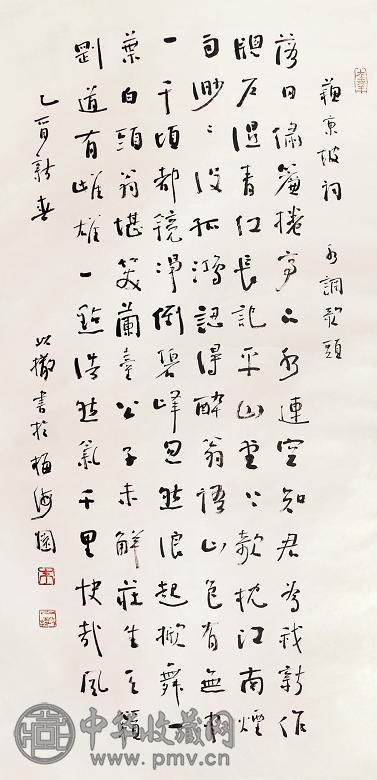 蘇東坡詞 水調歌頭
落日繡簾捲亭下水連空知君為我新作
牕戶濕青紅長記平山堂上欹枕江南煙
雨渺〻沒孤鴻認得醉翁語山色有無中
一千頃都鏡淨倒碧峰忽然浪起掀舞一
葉白頭翁堪笑蘭臺公子未解莊生天籟
剛道有雌雄一點浩然氣千里快哉風
乙酉新春 以撒書於園
中华收藏网
www.pmv.cn